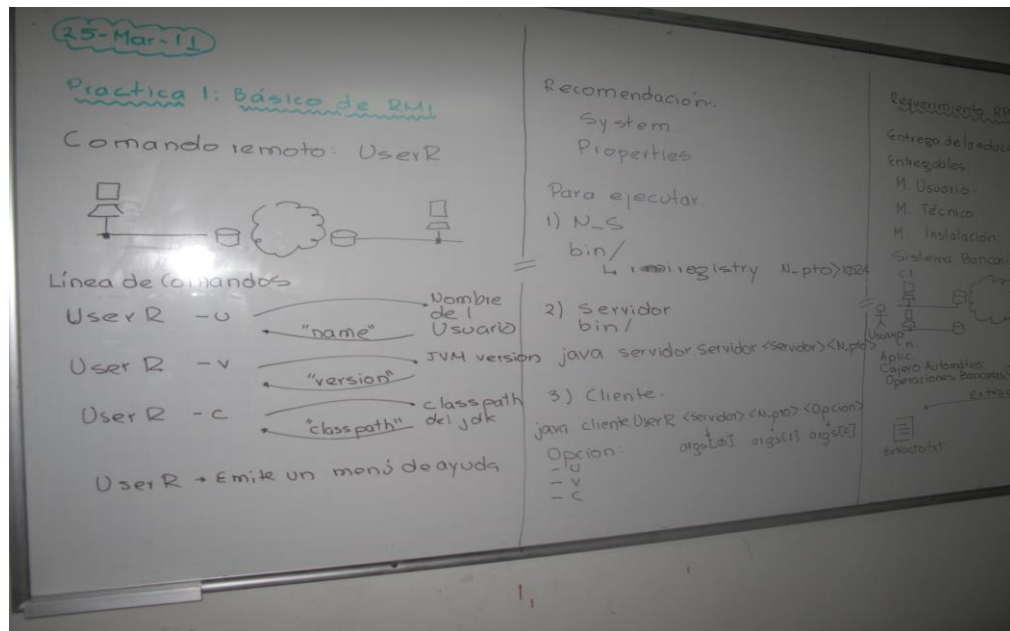 25-Mar-11
Practica 1: Básico de RMI
Comando remoto: UserR
Línea de Comandos
UserR -u
"name"
Nombre
del
Usuario
UserR -v
"version"
JVM version
UserR -c
"classpath"
classpath
del jdk
UserR → Emite un menú de ayuda
Recomendación:
System
Properties
Para ejecutar.
1) N_S
bin/
↳ rmiregistry N_pto>1024
2) Servidor
bin/
java servidor.Servidor <servidor> <N.pto>
3) Cliente.
java cliente.UserR <servidor> <N.pto> <Opcion>
args[0] args[1] args[2]
Opcion:
- u
- v
- c
Requerimiento
Entrega de la
Entregables
M. Usuario.
M. Técnico
M. Instalación:
Sistema Bancari
C1
Usuario
Cn
Aplic.
Cajero Automático
Operaciones Bancarias
Extracto.txt